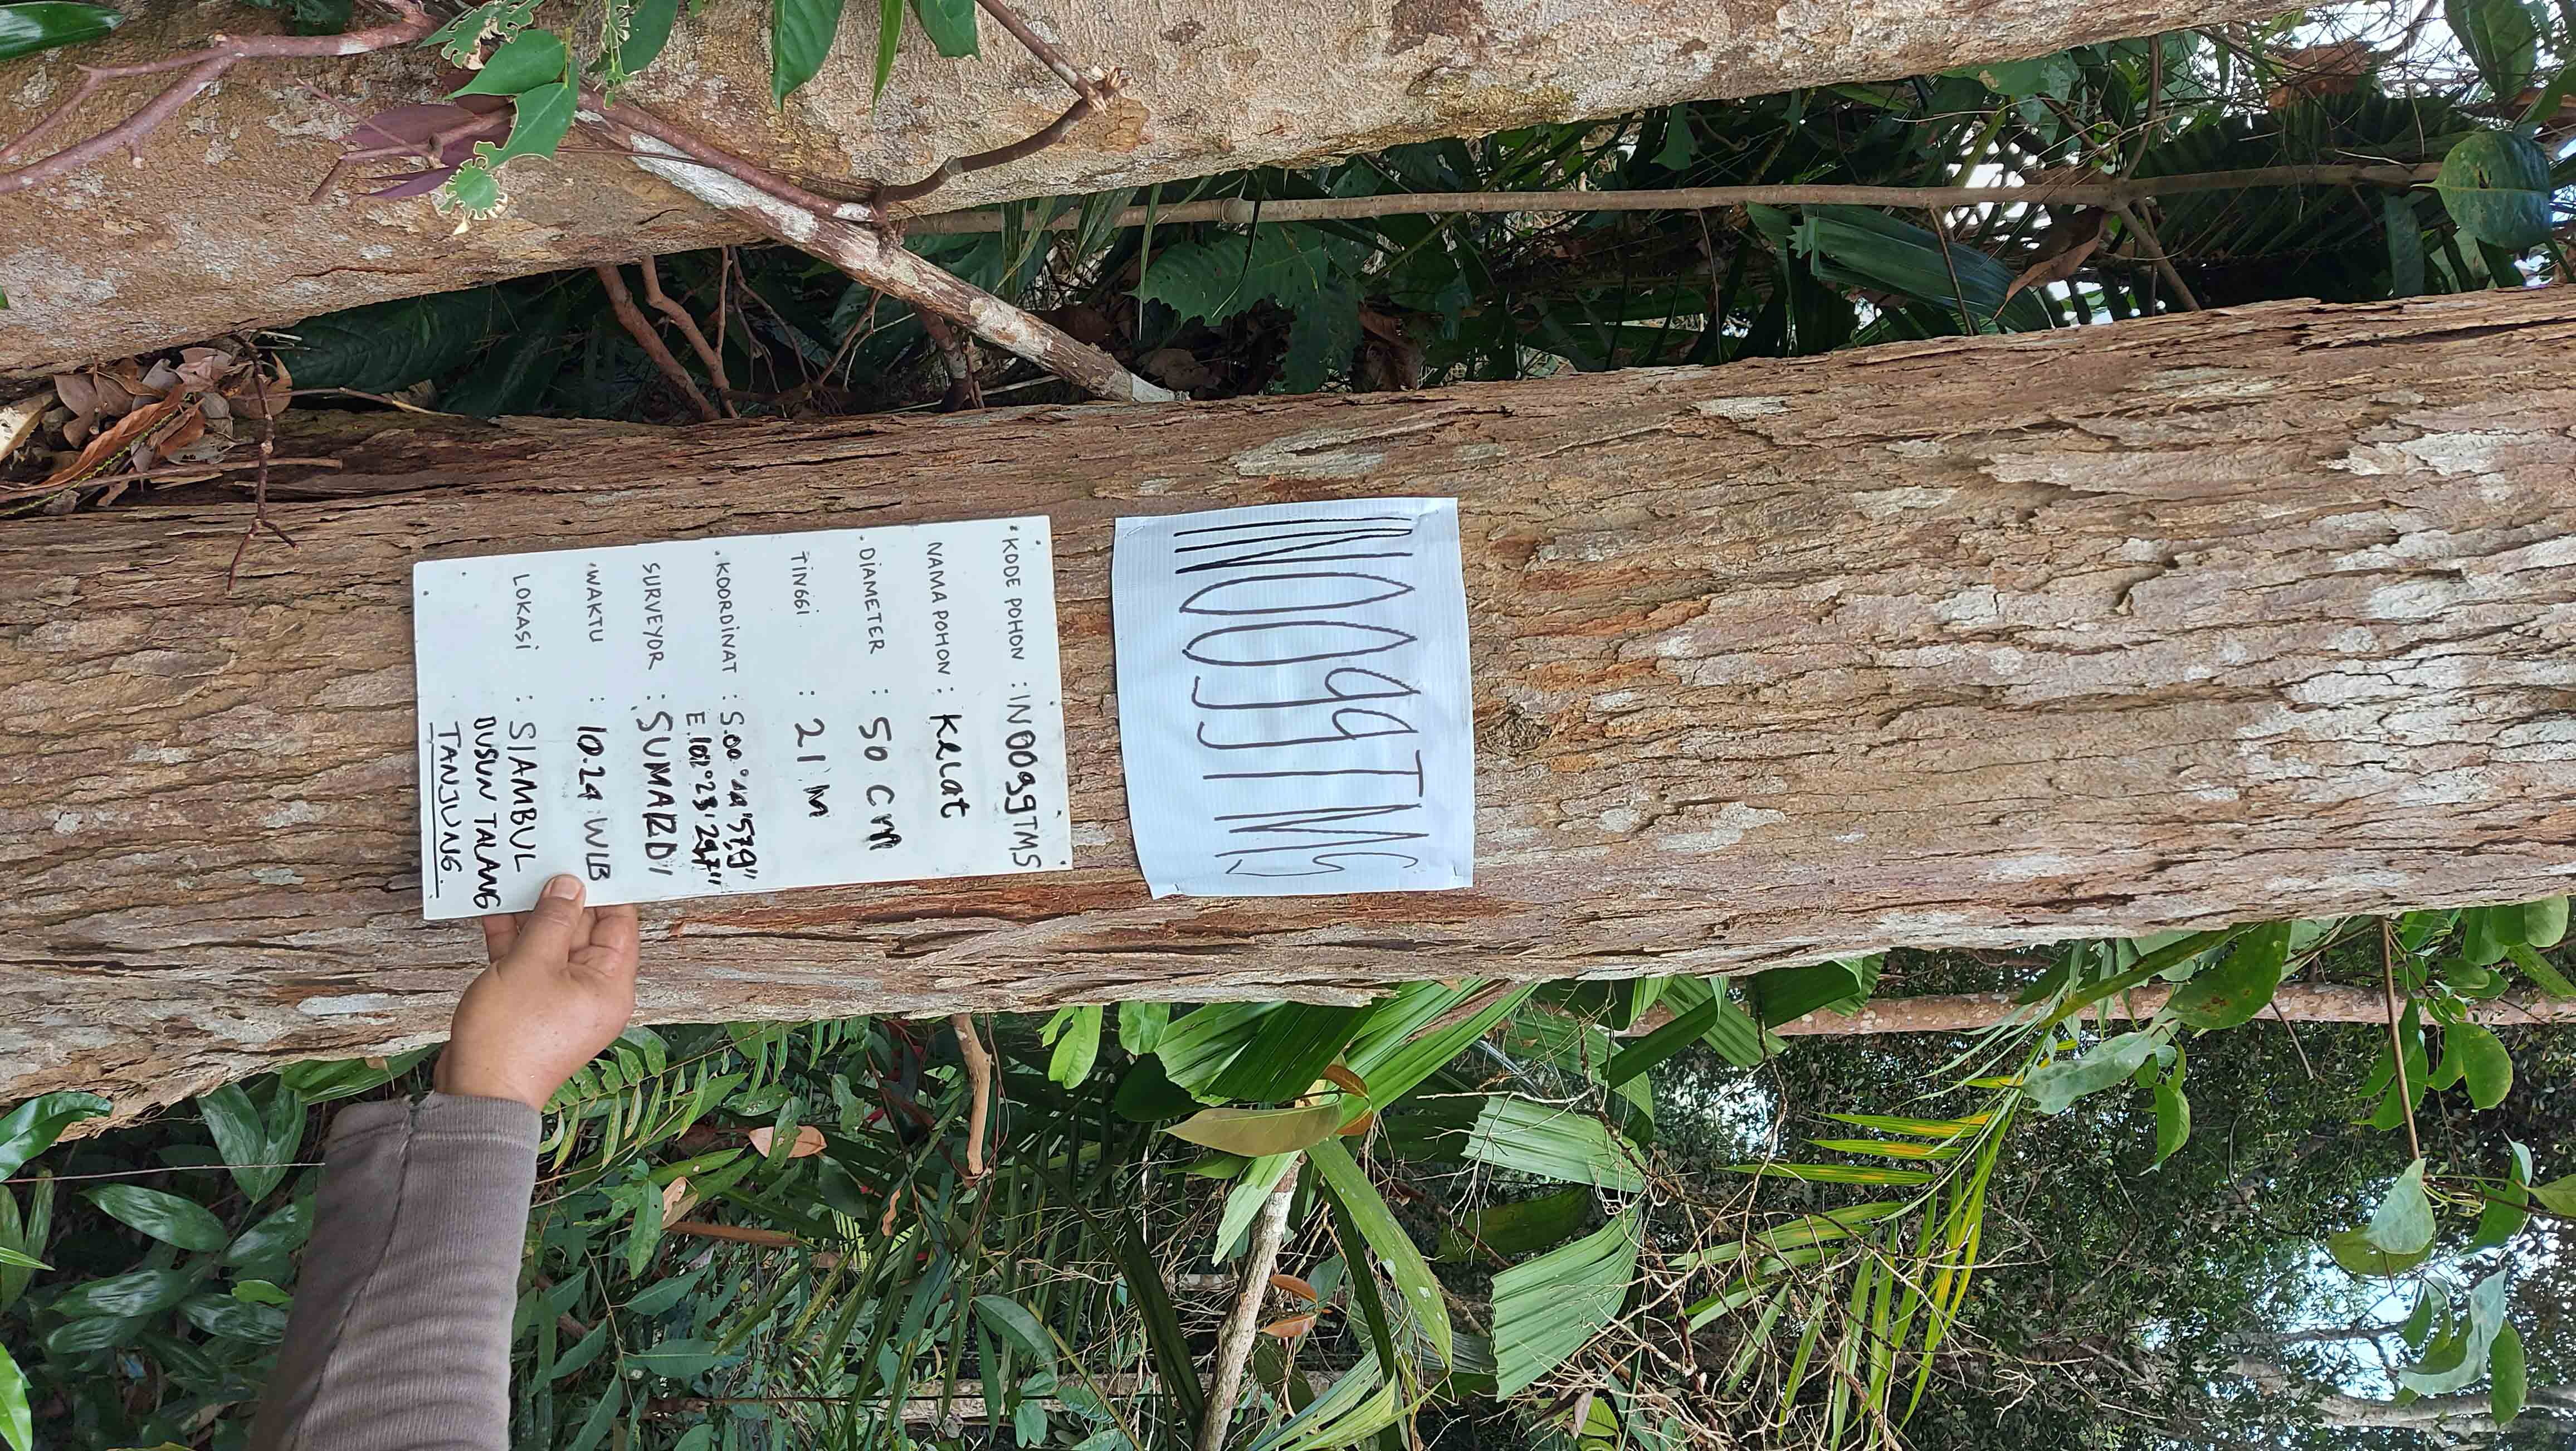 IN0099TMS
KODE POHON : IN0099TMS
NAMA POHON : Kelat
DIAMETER : 50 CM
TINGGI : 21 M
KOORDINAT : S.00° '57,9"
E.102°23'29,7"
SURVEYOR : SUMARDI
WAKTU : 10.24 WIB
LOKASI : SIAMBUL
DUSUN TALANG
TANJUNG.